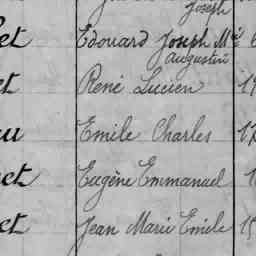 Joseph
et Edouard Joseph Mie 6
Augustin
et René Lucien 19
au Emile Charles 17
et Eugène Emmanuel 1
et Jean Marie Emile 15